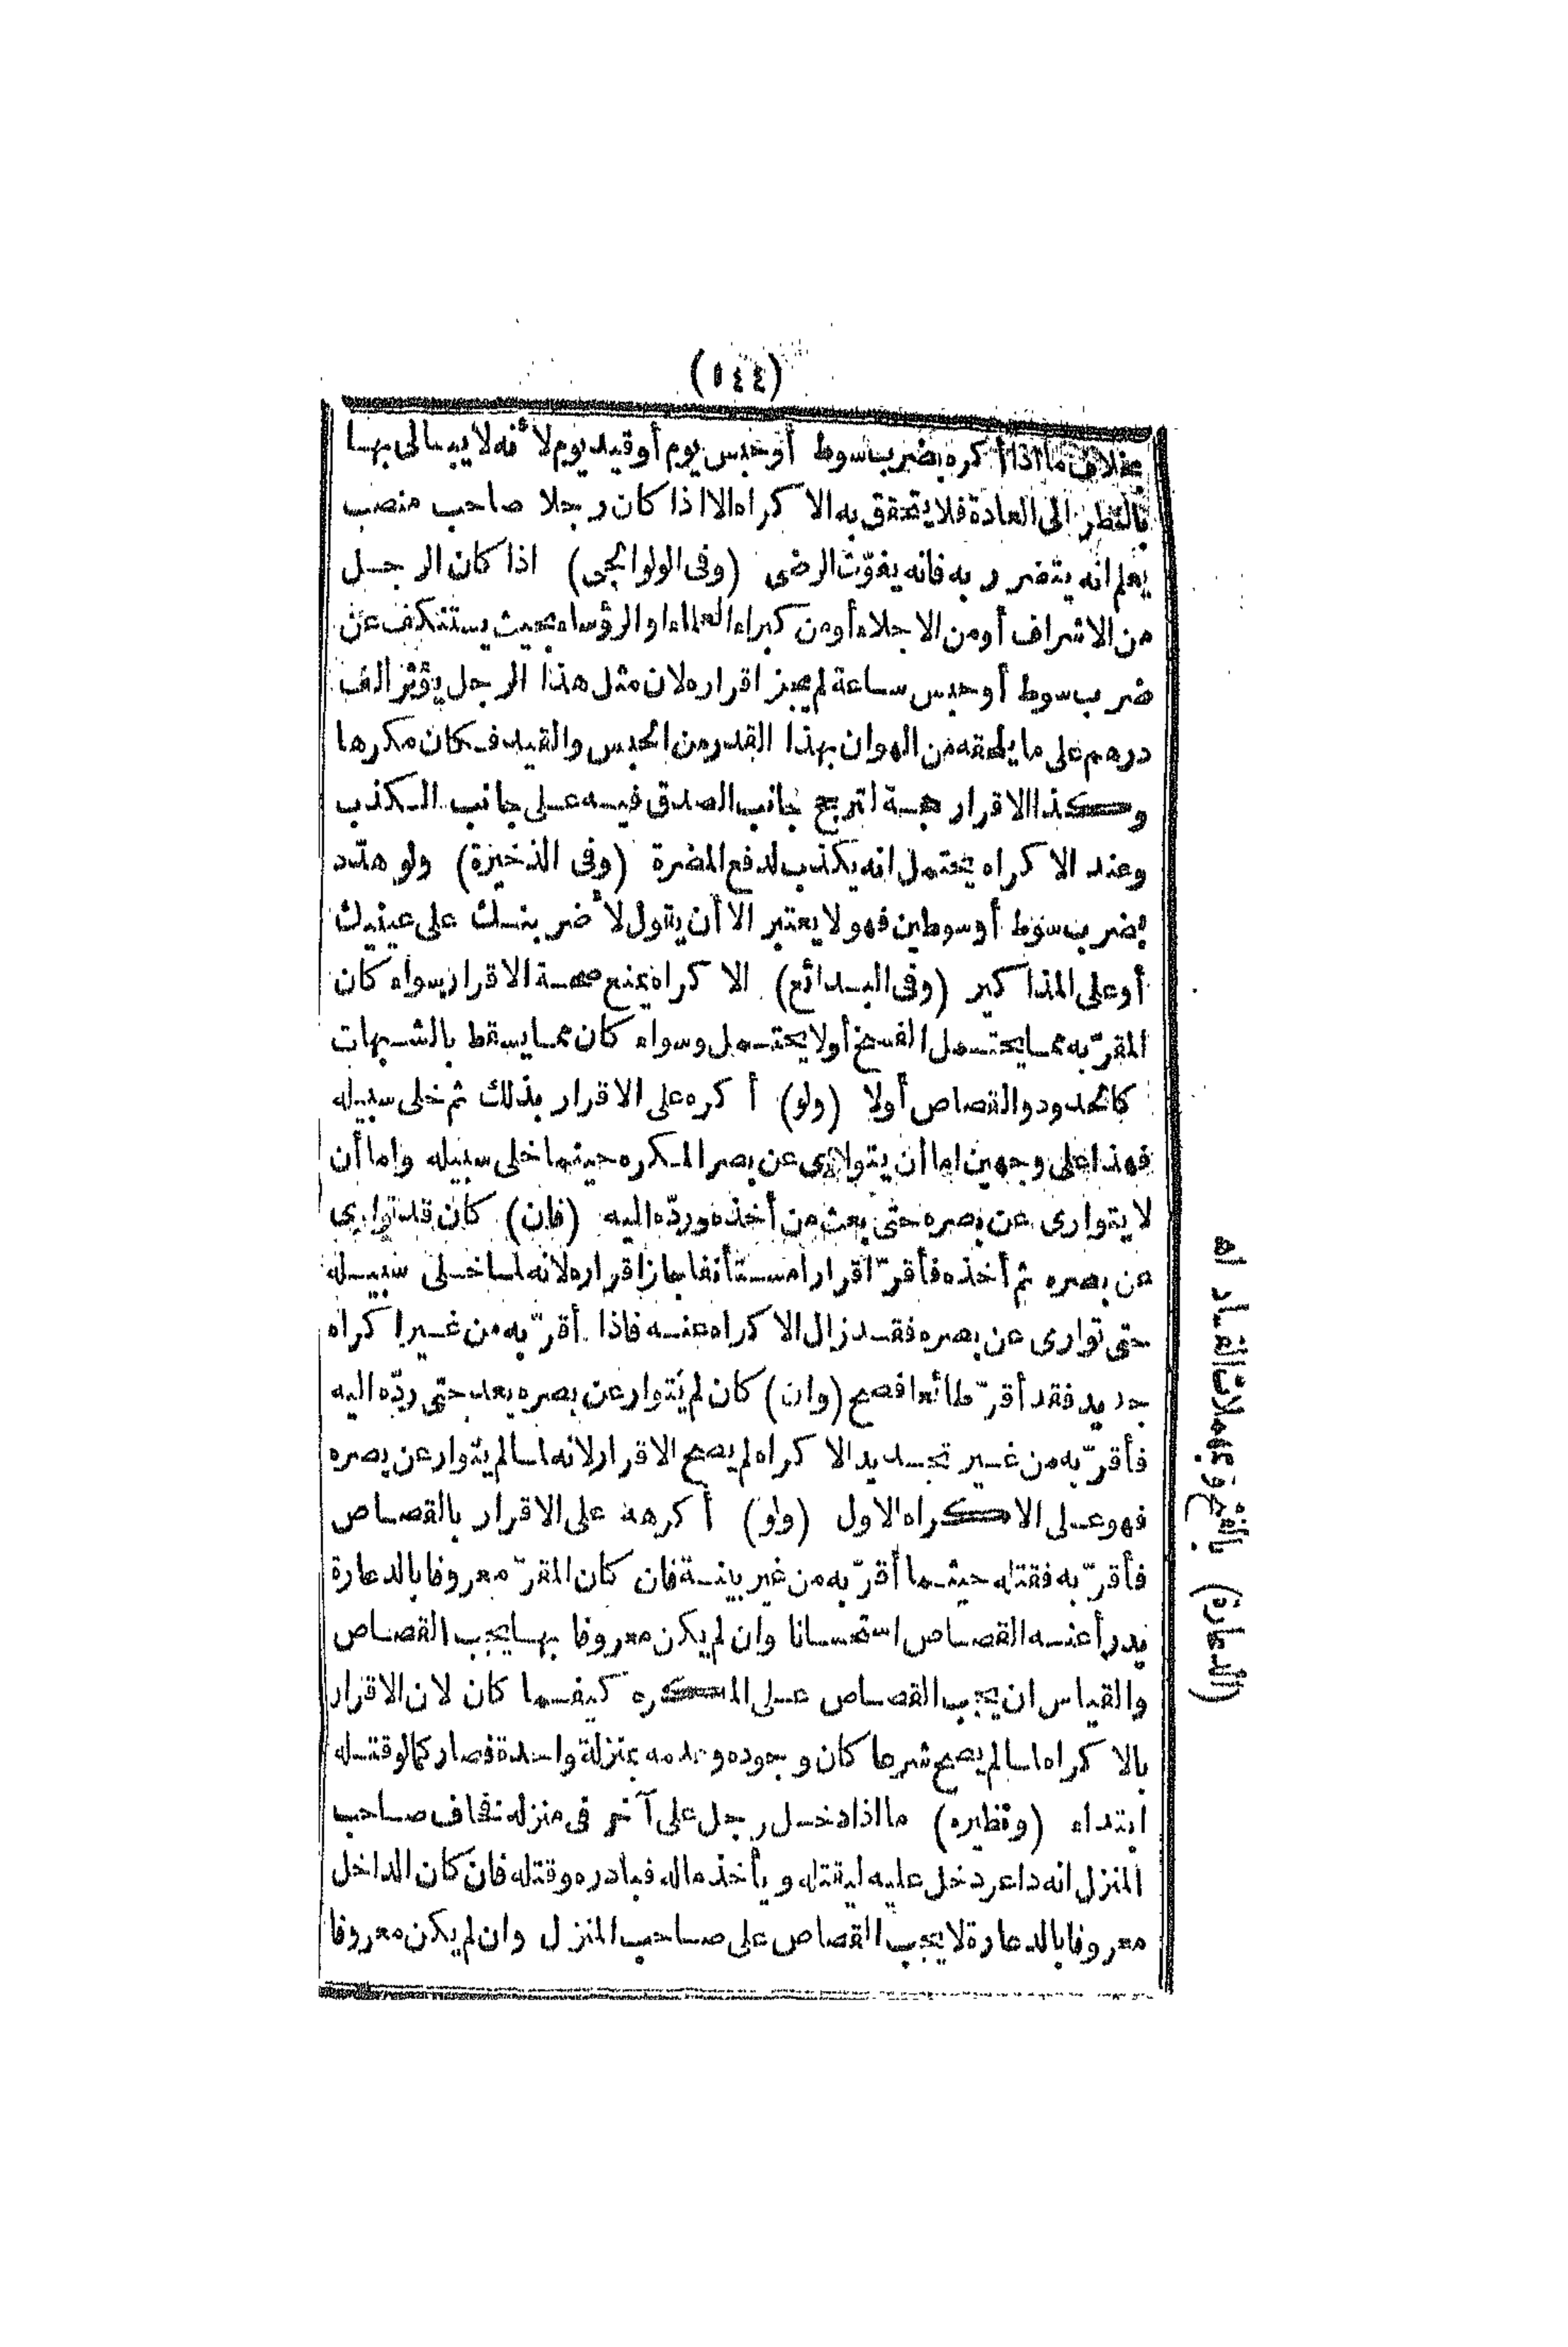 (٥٤٤)
بخلاف مااذا أكره بضرب سوط أوحبس يوم أوقيد يوم لأنه لا يبالى بها
بالنظر الى العادة فلا يتحقق به الاكراه الا اذا كان رجلا صاحب منصب
يعلم انه يتضرر به فانه يفوّت الرضى (وفى الولوالجى) اذا كان الرجل
من الاشراف أومن الاجلاء أومن كبراء العلماء والرؤساء بحيث يستنكف عن
ضرب سوط أوحبس ساعة لم يجز اقراره لان مثل هذا الرجل يؤثر ألف
درهم على ما يلحقه من الهوان بهذا القدر من الحبس والقيد فكان مكرها
وكذا الاقرار حجة لترجح جانب الصدق فيه على جانب الكذب
وعند الاكراه يحتمل انه يكذب لدفع المضرة (وفى الذخيرة) ولو هدّد
بضرب سوط أوسوطين فهو لا يعتبر الا أن يقول لأضربنك على عينيك
أوعلى المذاكير (وفى البدائع) الاكراه يمنع صحة الاقرار سواء كان
المقرّ به مما يحتمل الفسخ أولا يحتمل وسواء كان مما يسقط بالشبهات
كالحدود والقصاص أولا (ولو) أكره على الاقرار بذلك ثم خلى سبيله
فهذا على وجهين اما أن يتوارى عن بصر المكره حينما خلى سبيله واما أن
لا يتوارى عن بصره حتى بعث من أخذه وردّه اليه (فان) كان قد توارى
عن بصره ثم أخذه فأقرّ اقرارا مستأنفا جاز اقراره لانه لما خلى سبيله
حتى توارى عن بصره فقد زال الاكراه عنه فاذا أقرّ به من غير اكراه
جديد فقد أقرّ طائعا فصح (وان) كان لم يتوار عن بصره بعد حتى ردّه اليه
فأقرّ به من غير تجديد الاكراه لم يصح الاقرار لانه لما لم يتوار عن بصره
فهو على الاكراه الاول (ولو) أكرهه على الاقرار بالقصاص
فأقرّ به فقتله حيثما أقرّ به من غير بينة فان كان المقرّ معروفا بالدعارة
يدرأ عنه القصاص استحسانا وان لم يكن معروفا بها يجب القصاص
والقياس ان يجب القصاص على المكره كيفما كان لان الاقرار
بالاكراه لما لم يصح شرعا كان وجوده وعدمه بمنزلة واحدة فصار كمالوقتله
ابتداء (ونظيره) مااذا دخل رجل على آخر فى منزله فخاف صاحب
المنزل انه داعر دخل عليه ليقتله ويأخذ ماله فبادره وقتله فان كان الداخل
معروفا بالدعارة لا يجب القصاص على صاحب المنزل وان لم يكن معروفا
(الدعارة) بالفتح